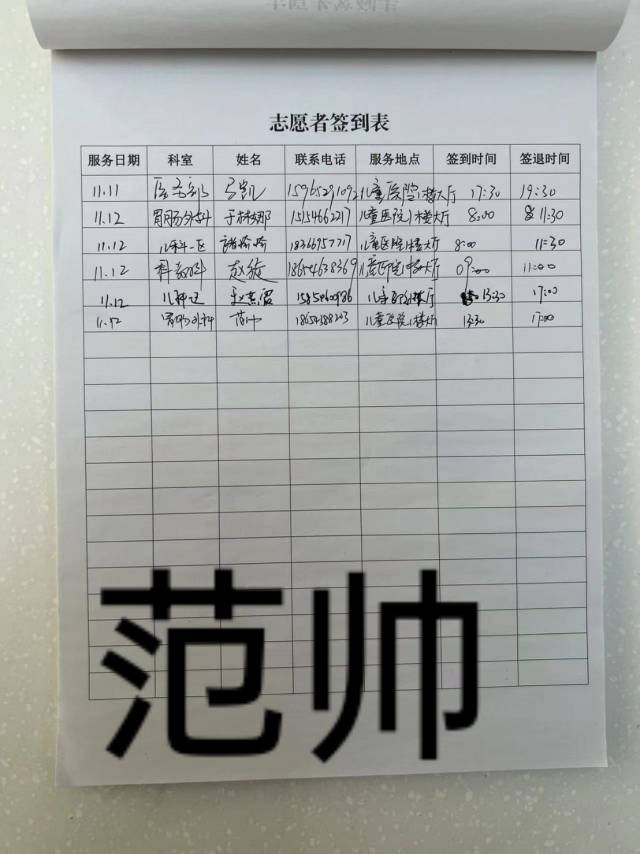 志愿者签到表
服务日期 科室 姓名 联系电话 服务地点 签到时间 签退时间
11.11 医务部 弓凯 15965291092 儿童医院1楼大厅 17:30 19:30
11.12 胃肠外科 于林娜 15154662217 儿童医院1楼大厅 8:00 11:30
11.12 儿科一区 18366957717 儿童医院1楼大厅 8:00 11:30
11.12 科教科 赵璇 18654638369 儿童医院1楼大厅 09:00 11:00
11.12 儿童医院1楼大厅 13:30 17:00
11.12 胃肠外科 范帅 儿童医院1楼大厅 13:30 17:00
范帅